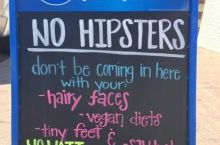 NO HIPSTERS
don't be coming in here
with your:
-hairy faces
-vegan diets
-tiny feet &